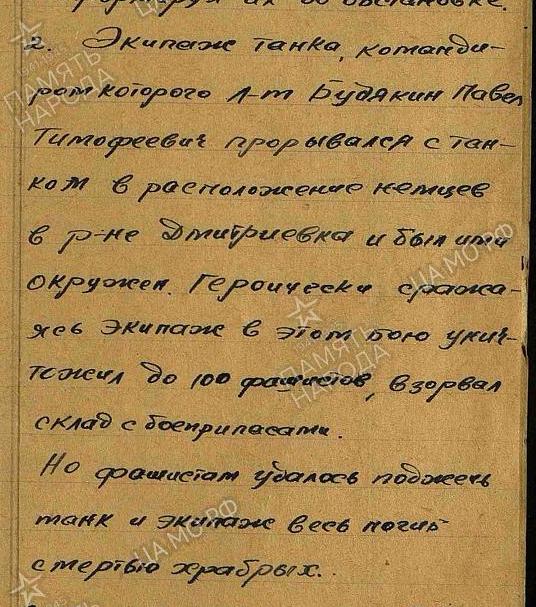 формируя их об обстановке.
2. Экипаж танка, команди-
ром которого л-т Будякин Павел
Тимофеевич прорывался с тан-
ком в расположение немцев
в р-не Дмитриевка и был ими
окружен. Героически сража-
ясь экипаж в этом бою унич-
тожил до 100 фашистов, взорвал
склад с боеприпасами.
Но фашистам удалось поджечь
танк и экипаж весь погиб
смертью храбрых.
ПАМЯТЬ
НАРОДА
ЦА МО РФ